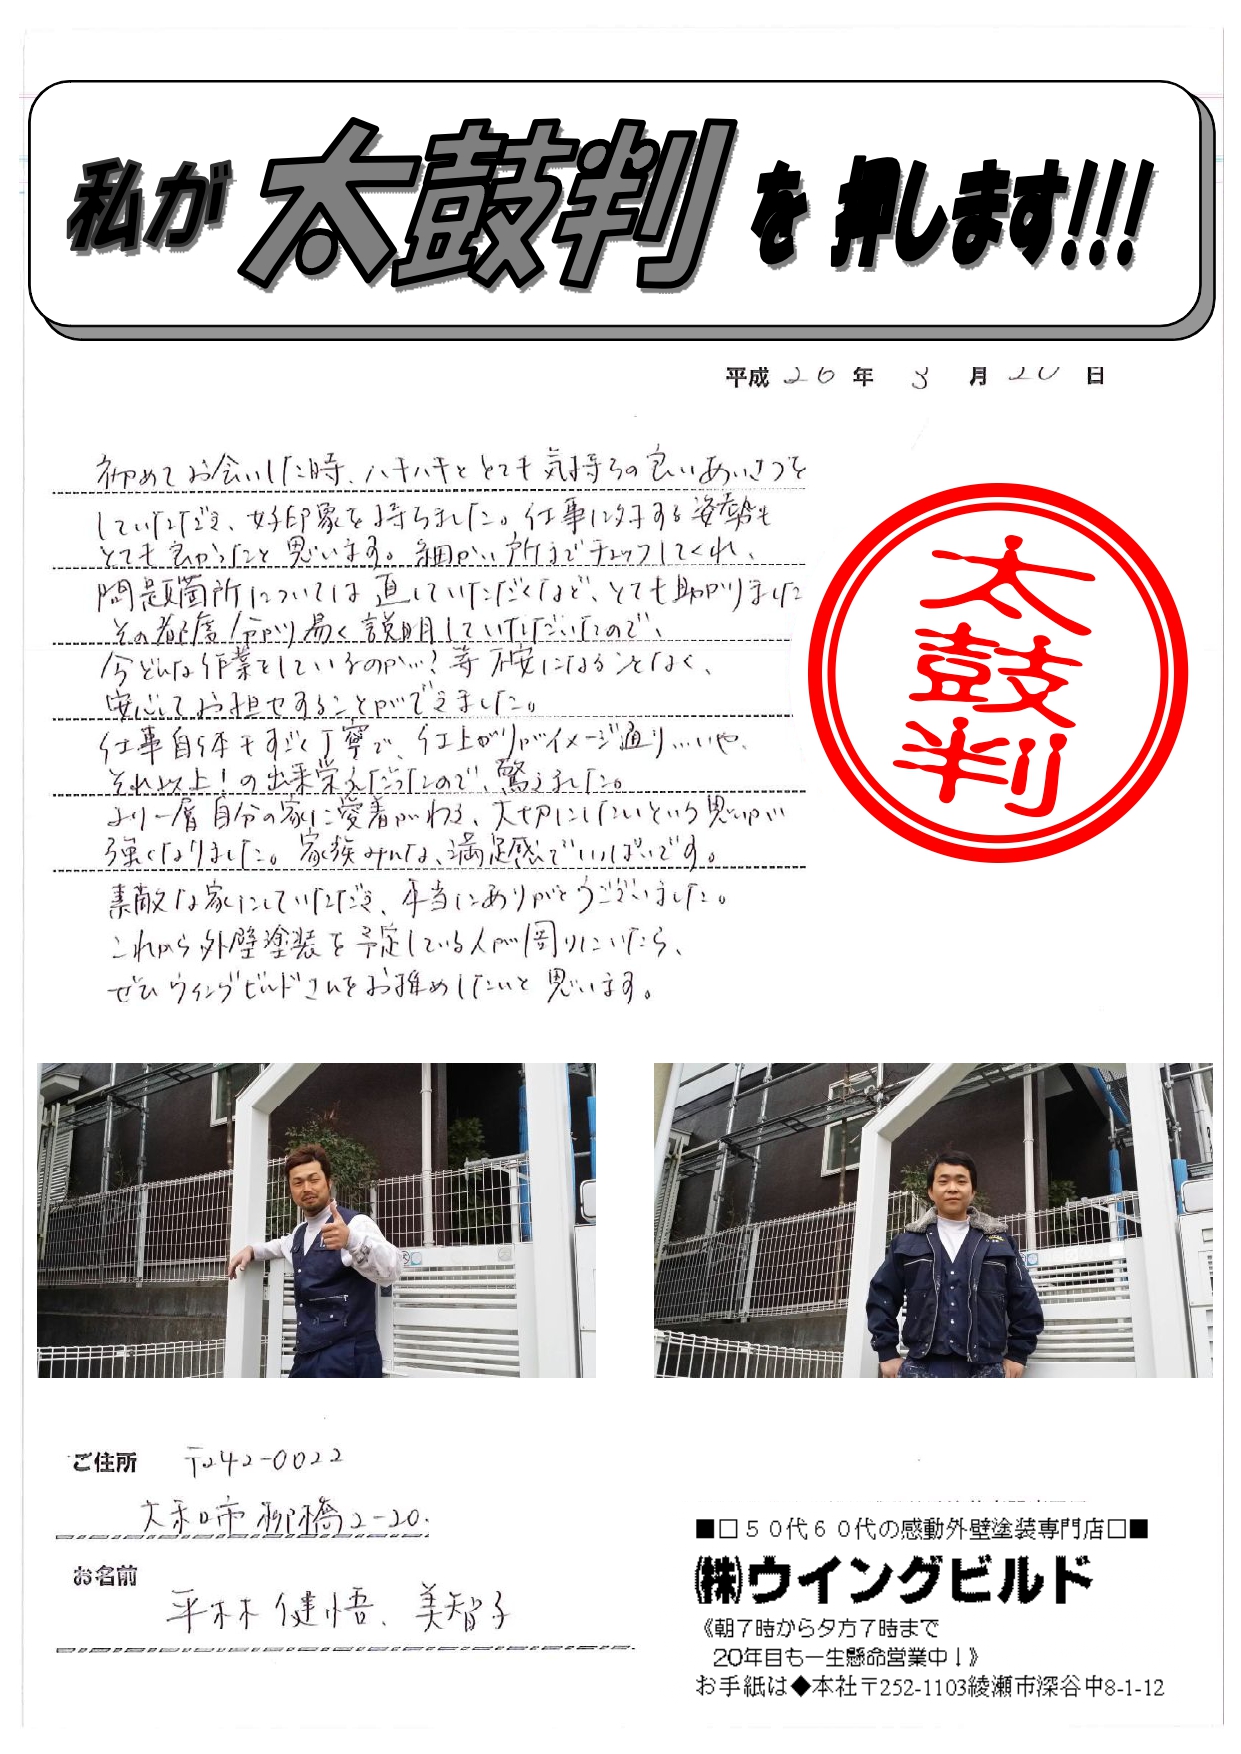 私が太鼓判を押します!!!
平成26年3月20日
初めてお会いした時、ハキハキととても気持ちの良いあいさつを
していただき、好印象を持ちました。仕事に対する姿勢も
とても良かったと思います。細かい所までチェックしてくれ、
問題箇所については直していただくなど、とても助かりました
その都度分かり易く説明していただいたので、
今どんな作業をしているのか…?等不安になることなく、
安心してお任せすることができました。
仕事自体もすごく丁寧で、仕上がりがイメージ通り…いや、
それ以上!の出来栄えだったので、驚きました。
より一層自分の家に愛着がわき、大切にしたいという思いが
強くなりました。家族みんな、満足感でいっぱいです。
素敵な家にしていただき、本当にありがとうございました。
これから外壁塗装を予定している人が周りにいたら、
ぜひウィングビルドさんをお推めしたいと思います。
太鼓判
ご住所 〒242-0022
大和市柳橋2-20.
お名前
平林 健悟、美智子
■□５０代６０代の感動外壁塗装専門店□■
㈱ウイングビルド
《朝7時から夕方7時まで
20年目も一生懸命営業中！》
お手紙は◆本社〒252-1103綾瀬市深谷中8-1-12